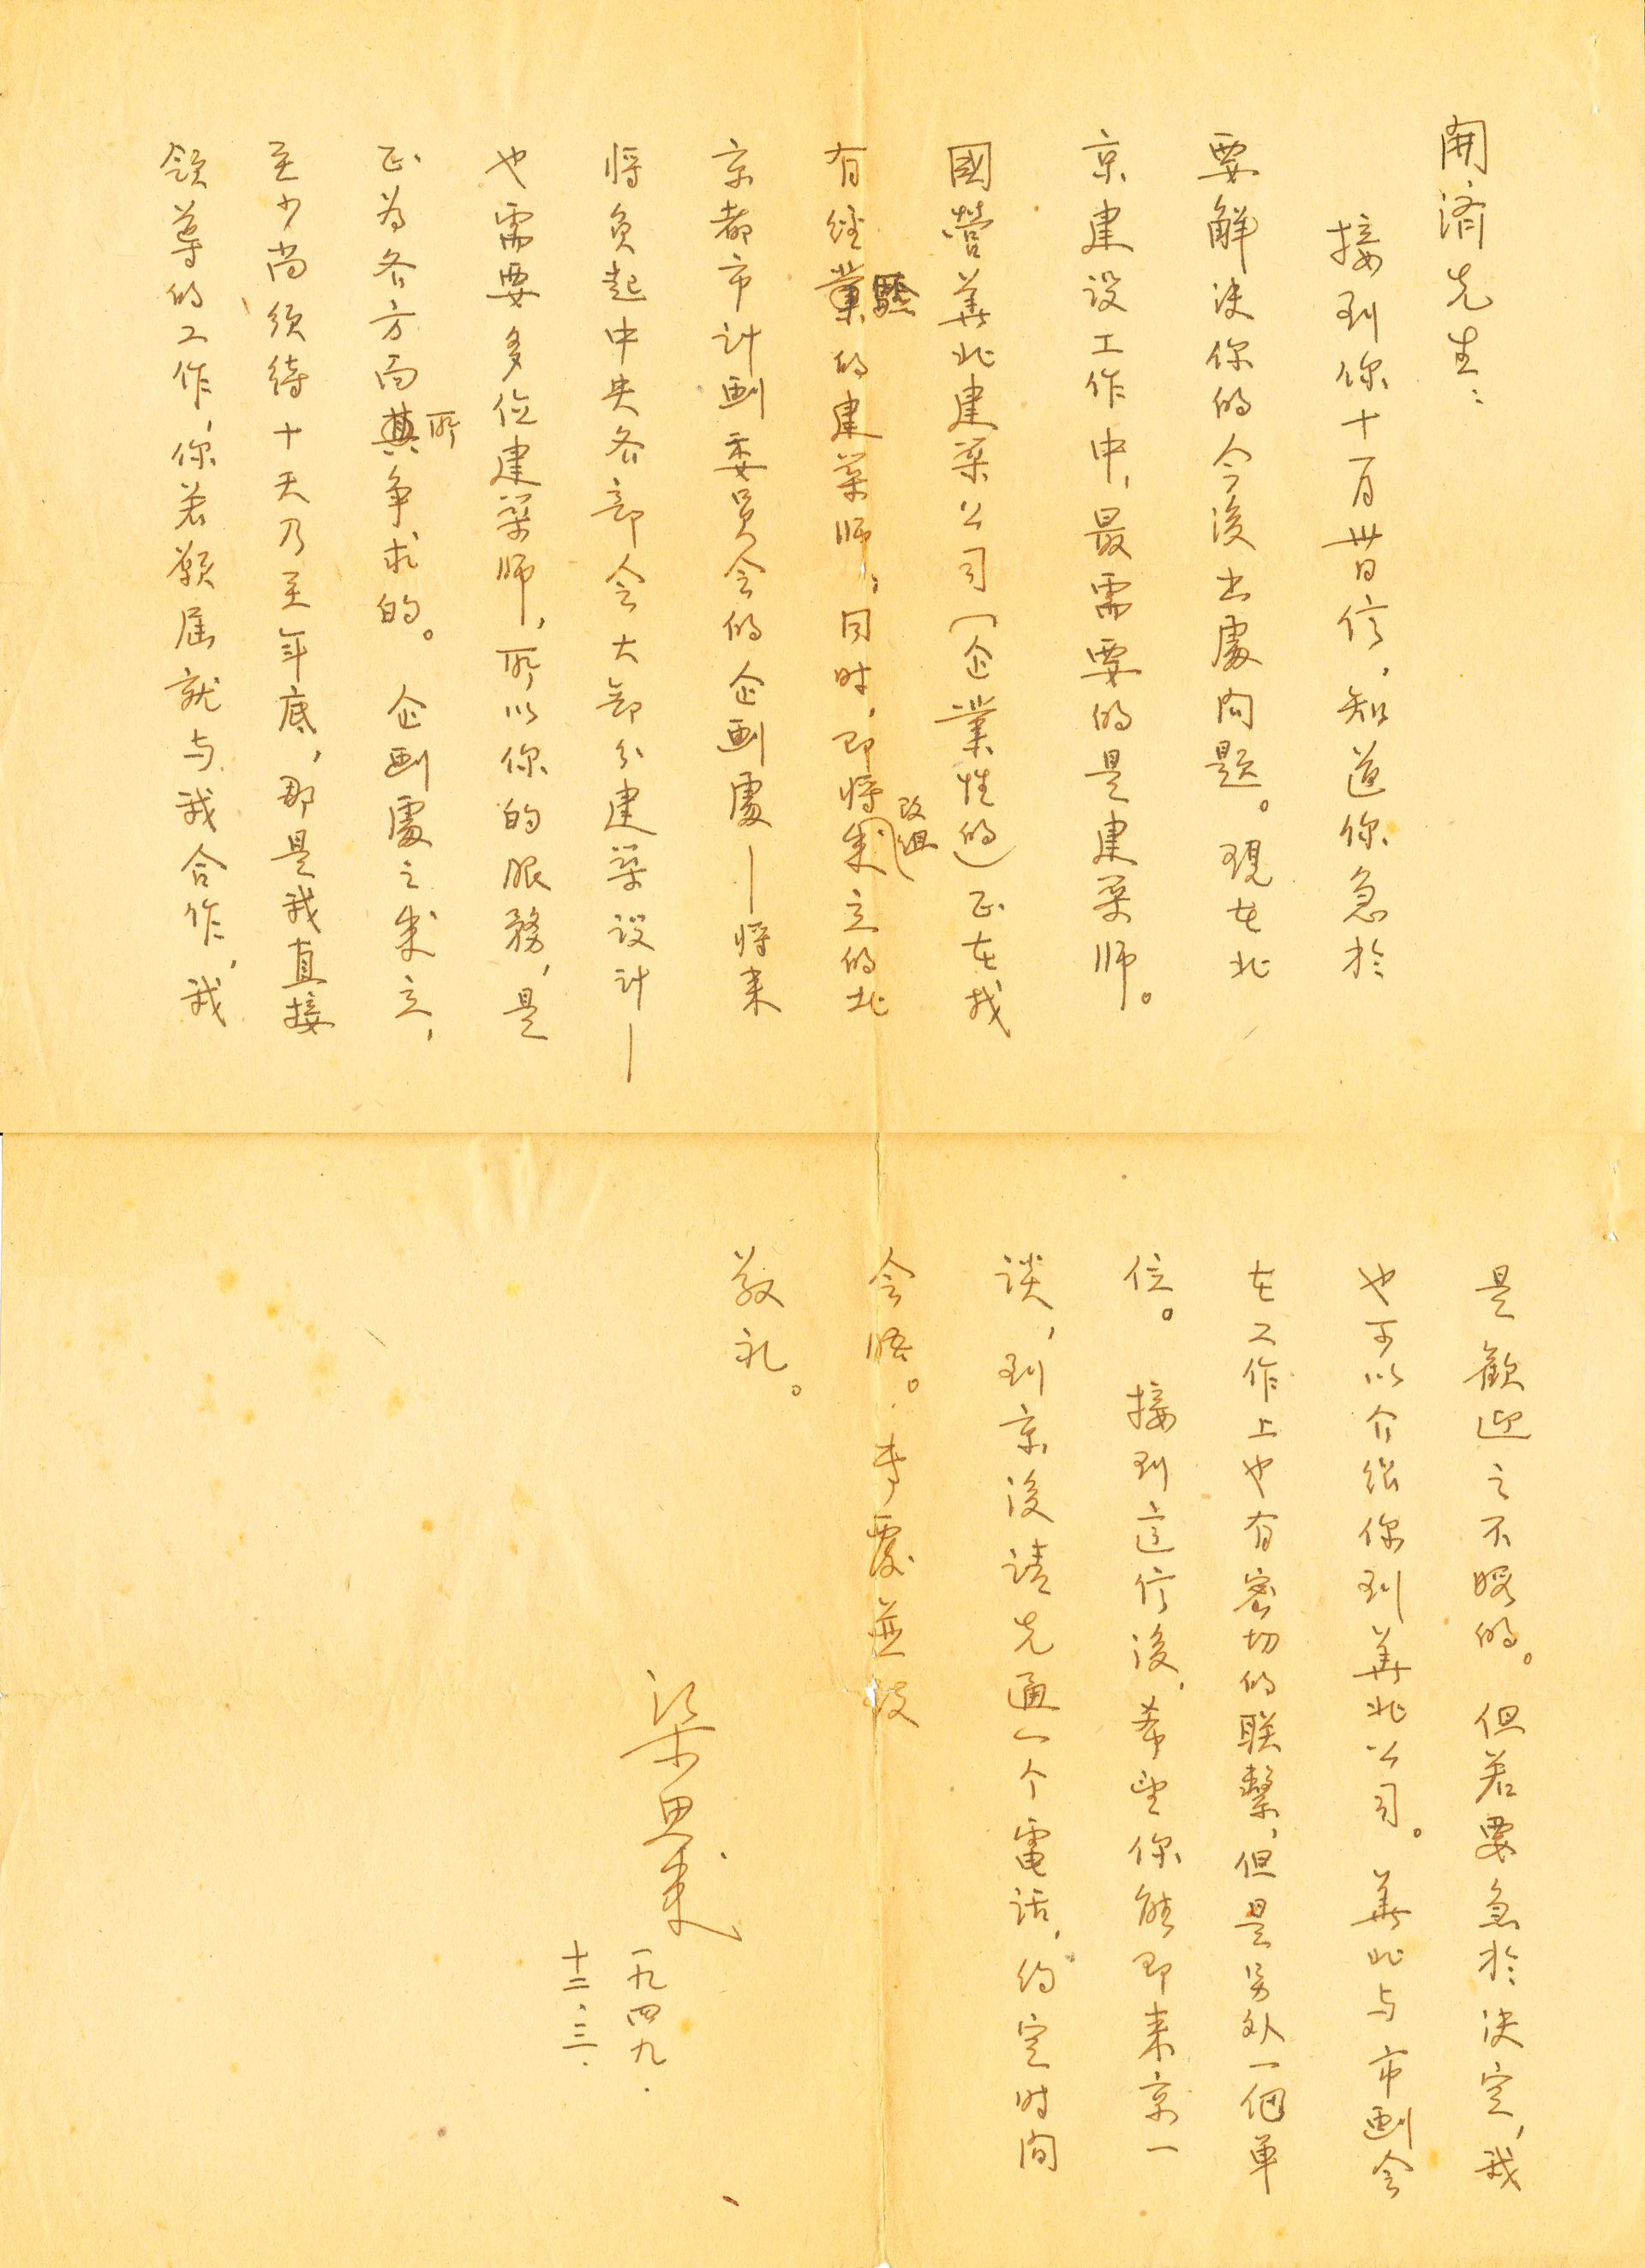 開濟先生：
接到你十一月卅日信，知道你急於
要解决你的今後出處问题。現在北
京建设工作中，最需要的是建筑师。
國营華北建筑公司（企業性的）正在找
有经驗的建筑师；同时，即将改组成立的北
京都市计劃委员会的企劃處——将来
将负起中央各部会大部分建筑设计——
也需要多位建筑师，所以你的服務，是
正为各方面所争求的。企劃處之成立，
至少尚须待十天乃至年底，那是我直接
領导的工作，你若願屈就与我合作，我
是歡迎之不暇的。但若要急於决定，我
也可以介绍你到華北公司。華北与市劃会
在工作上也有密切的联繫，但是另外一個单
位。接到这信後，希望你能即来京一
谈，到京後请先通一个電话，约定时间
会晤。専覆並致
敬礼。
梁思成
一九四九．
十二、三．